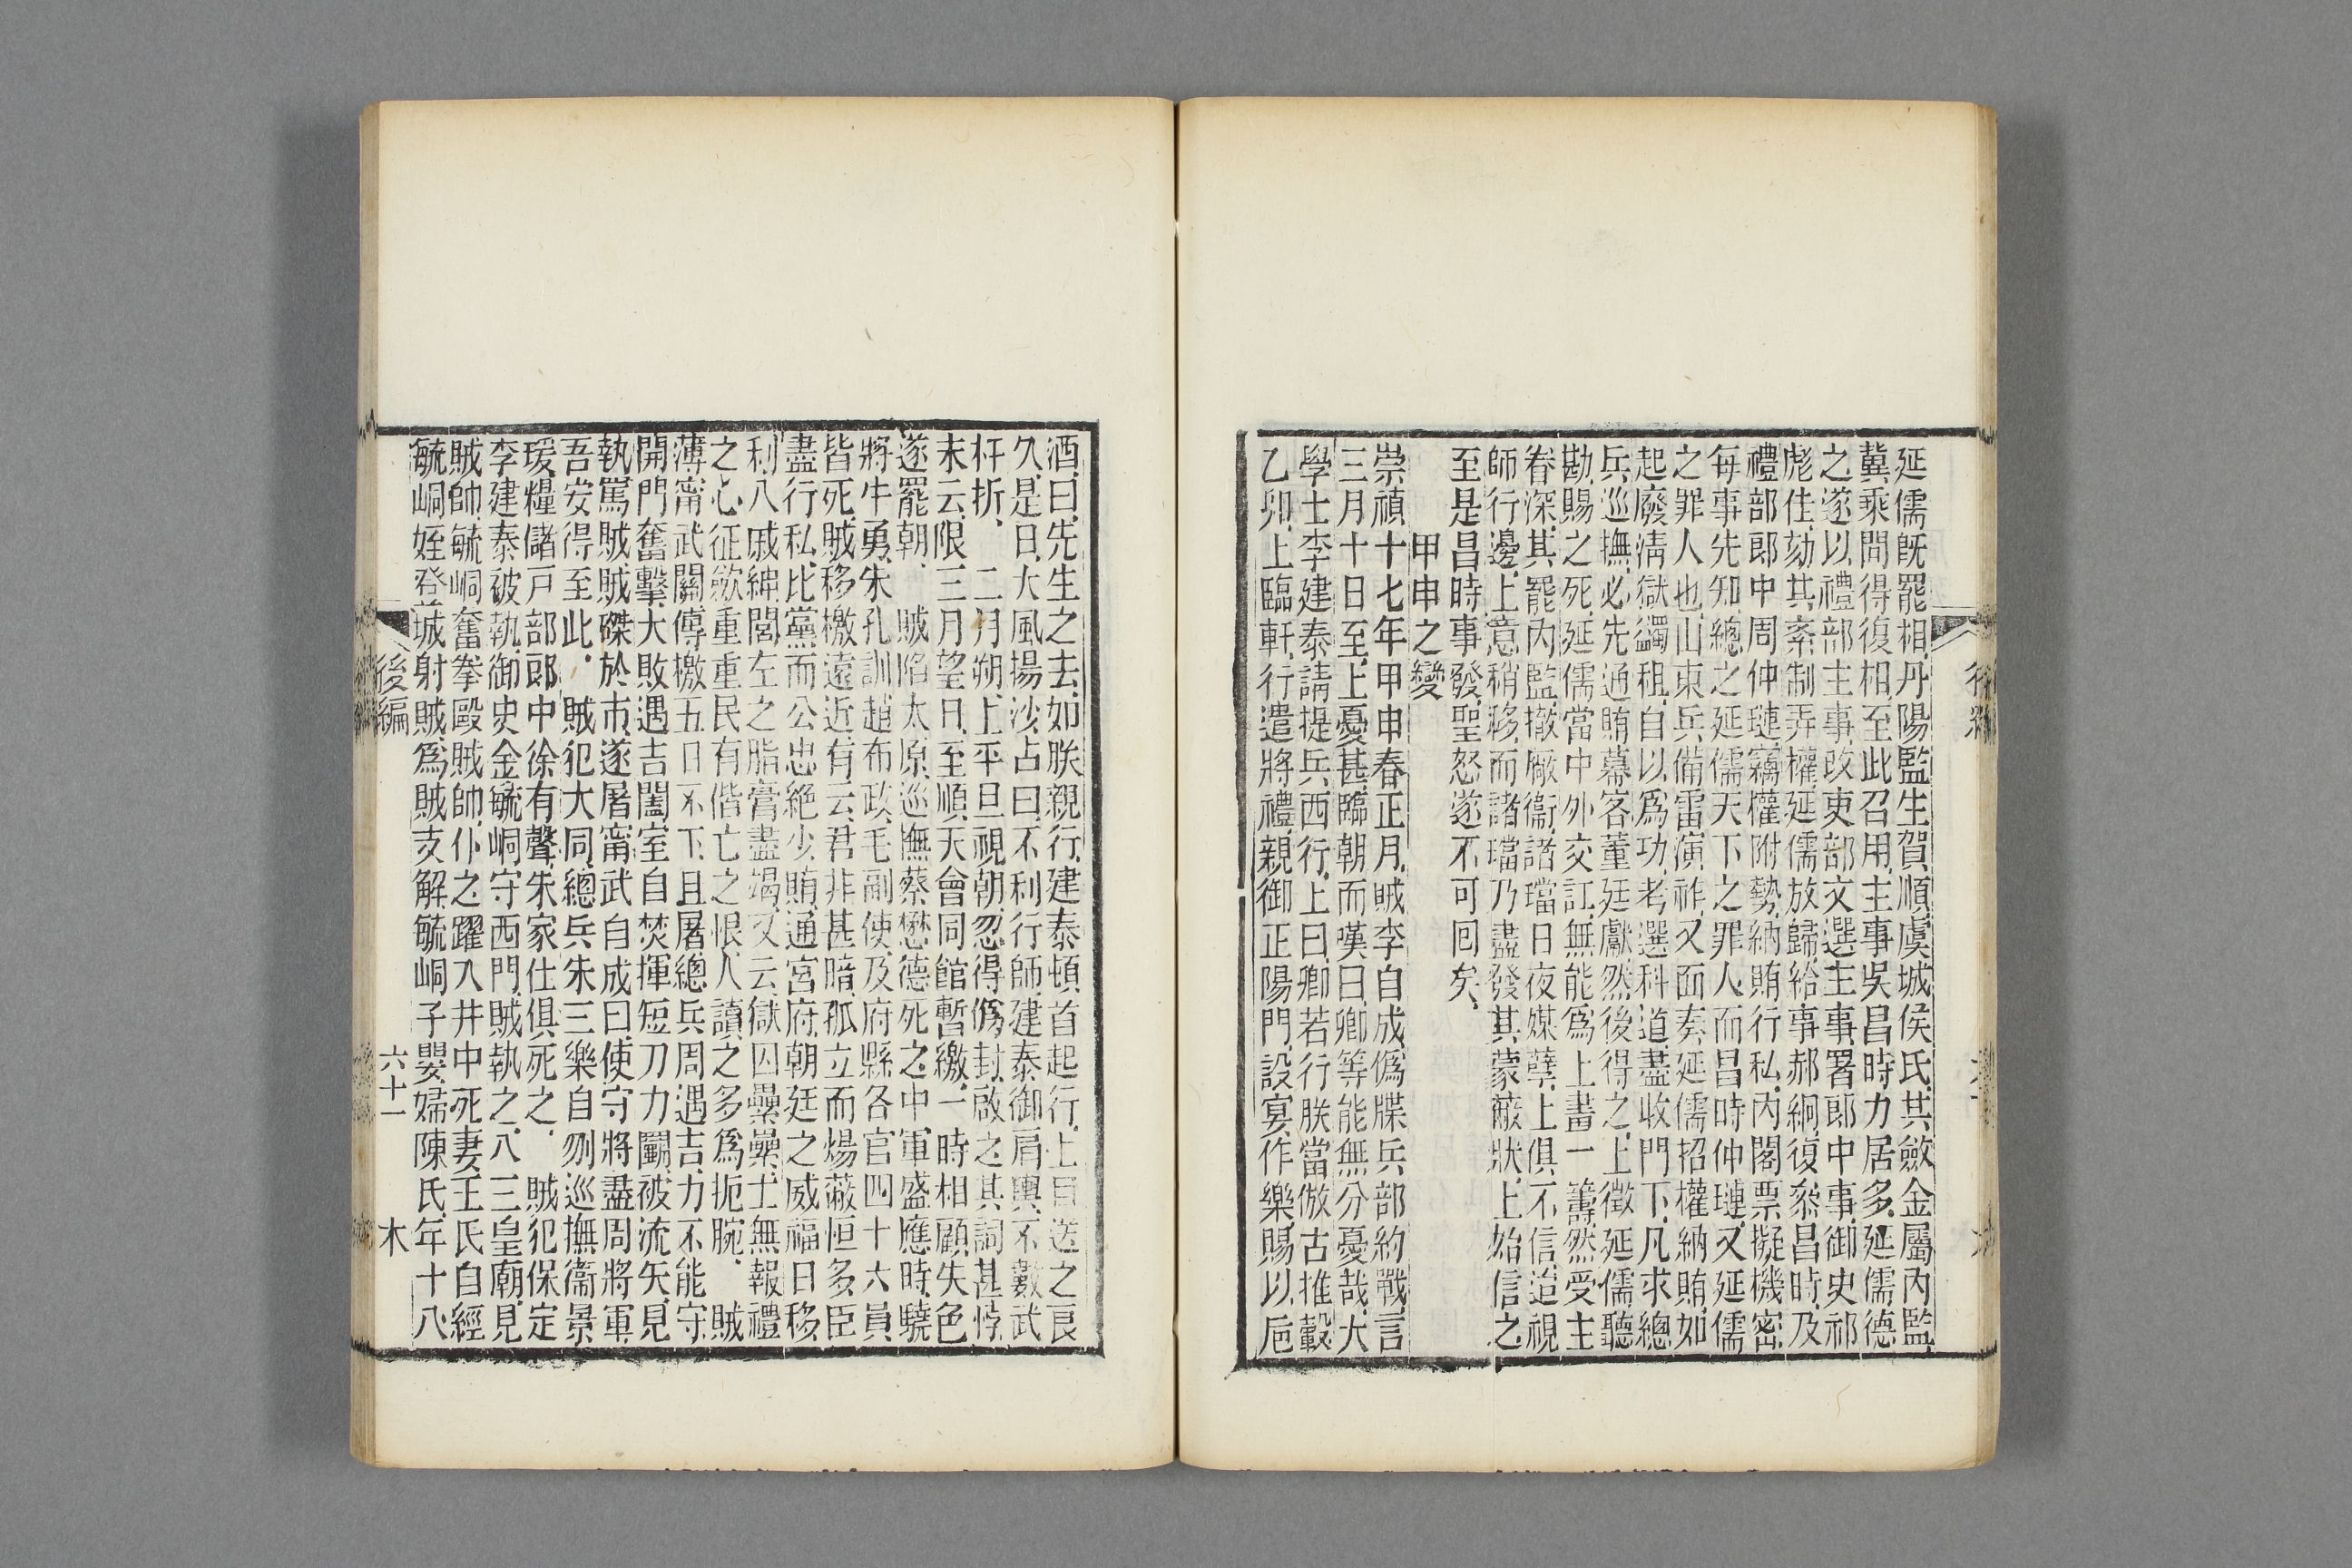 延儒旣罷相、丹陽監生賀順、虞城侯氏、其斂金屬內監、
冀乘間得復相、至此召用、主事吳昌時力居多、延儒德
之、遂以禮部主事、改吏部文選主事、署郎中事、御史祁
彪佳、劾其紊制弄權、延儒放歸、給事郝絅、復叅昌時、及
禮部郎中周仲璉、竊權附勢、納賄行私、內閣票擬機密、
每事先知、總之延儒天下之罪人、而昌時仲璉、又延儒
之罪人也、山東兵備雷演祚、又面奏延儒招權納賄、如
起廢淸獄蠲租、自以爲功、考選科道、盡收門下、凡求總
兵巡撫、必先通賄幕客董廷獻、然後得之、上徵延儒聽
勘、賜之死、延儒當中外交訌、無能爲上畫一籌、然受主
眷深、其罷內監、撤廠衞、諸璫日夜媒孽、上俱不信、迨視
師行邊、上意稍移、而諸璫乃盡發其蒙蔽狀、上始信之、
至是昌時事發、聖怒遂不可回矣、
甲申之變
崇禎十七年甲申春正月、賊李自成、僞牒兵部約戰、言
三月十日至、上憂甚、臨朝而嘆曰、卿等能無分憂哉、大
學士李建泰請提兵西行、上曰、卿若行、朕當倣古推轂、
乙卯、上臨軒、行遣將禮、親御正陽門、設宴作樂、賜以巵
酒曰、先生之去、如朕親行、建泰頓首起行、上目送之良
久、是日、大風揚沙、占曰、不利行師、建泰御肩輿、不數武
杆折、 二月朔、上平旦視朝、忽得僞封、啟之、其詞甚悖、
末云、限三月望日、至順天會同館暫繳、一時相顧失色、
遂罷朝、 賊陷太原、巡撫蔡懋德死之、中軍盛應時、驍
將牛勇、朱孔訓、趙布政、毛副使、及府縣各官四十六員
皆死、賊移檄遠近、有云、君非甚暗、孤立而煬蔽恒多、臣
盡行私、比黨而公忠絕少、賄通宮府、朝廷之威福日移、
利入戚紳、閭左之脂膏盡竭、又云、獄囚纍纍、士無報禮
之心、征斂重重、民有偕亡之恨、人讀之多爲扼腕、 賊
薄甯武關、傳檄五日不下、且屠、總兵周遇吉、力不能守、
開門奮擊、大敗、遇吉闔室自焚、揮短刀力鬬、被流矢、見
執、罵賊、賊磔於市、遂屠甯武、自成曰、使守將盡周將軍、
吾安得至此、 賊犯大同、總兵朱三樂自刎、巡撫衞景
瑗、糧儲戸部郎中徐有聲、朱家仕俱死之、 賊犯保定
李建泰被執、御史金毓峒守西門、賊執之、入三皇廟、見
賊帥、毓峒奮拳毆賊帥、仆之、躍入井中死、妻王氏自經
毓峒姪登城射賊、爲賊支解、毓峒子婦陳氏、年十八、
後編
六十一
木